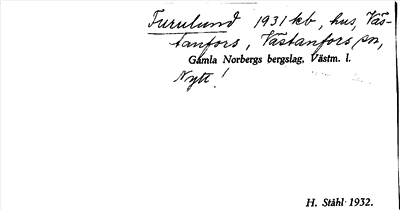 Furulund 1931 kb, hus, Väs-
tanfors, Västanfors sn,
Gamla Norbergs bergslag, Västm. l.
Nytt!
H. Ståhl 1932.